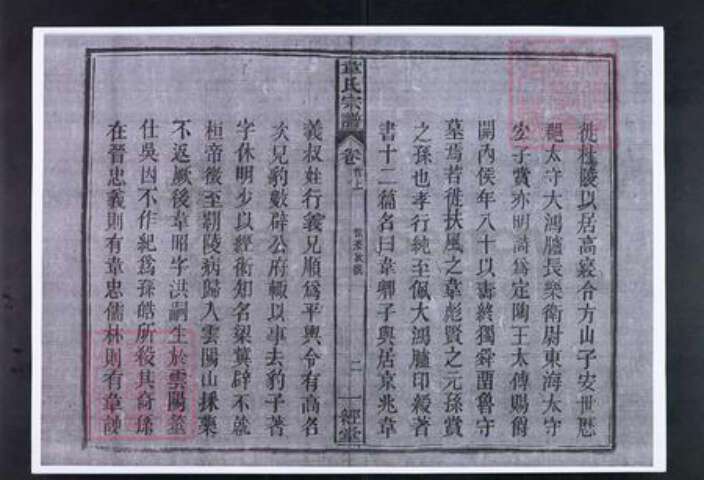 徙杜陵以居高寢令方山子安世歷
郡太守大鴻臚長樂衛尉東海太守
宏子賞亦明詩爲定陶王太傅賜爵
關內侯年八十以壽終獨舜留魯守
墓焉若徙扶風之韋彪賢之元孫賞
之孫也孝行純至佩大鴻臚印綬著
書十二篇名曰韋卿子與居京兆韋
韋氏宗譜 卷首上 二 一經堂
義叔姪行義兄順爲平輿令有高名
次兄豹數辟公府輒以事去豹子著
字休明少以經術知名梁冀辟不就
桓帝徵至霸陵病歸入雲陽山採藥
不返厥後韋昭字洪嗣生於雲陽筮
仕吳因不作紀爲孫皓所殺其裔孫
在晉忠義則有韋忠儒林則有韋謏